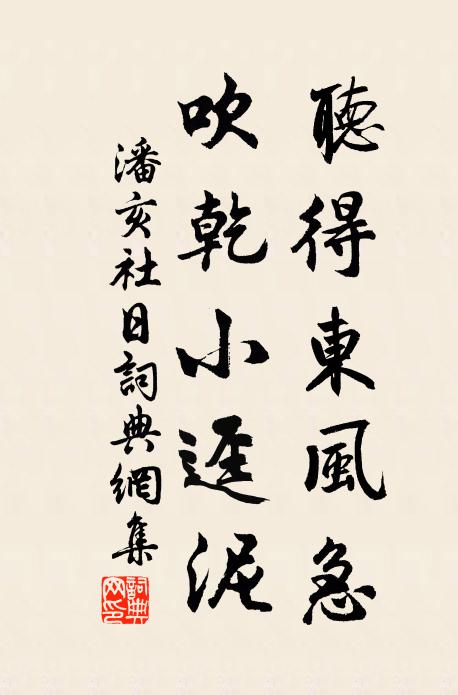 聽得東風急
吹乾小逕泥
潘亥社日詞典網集
詞典网印